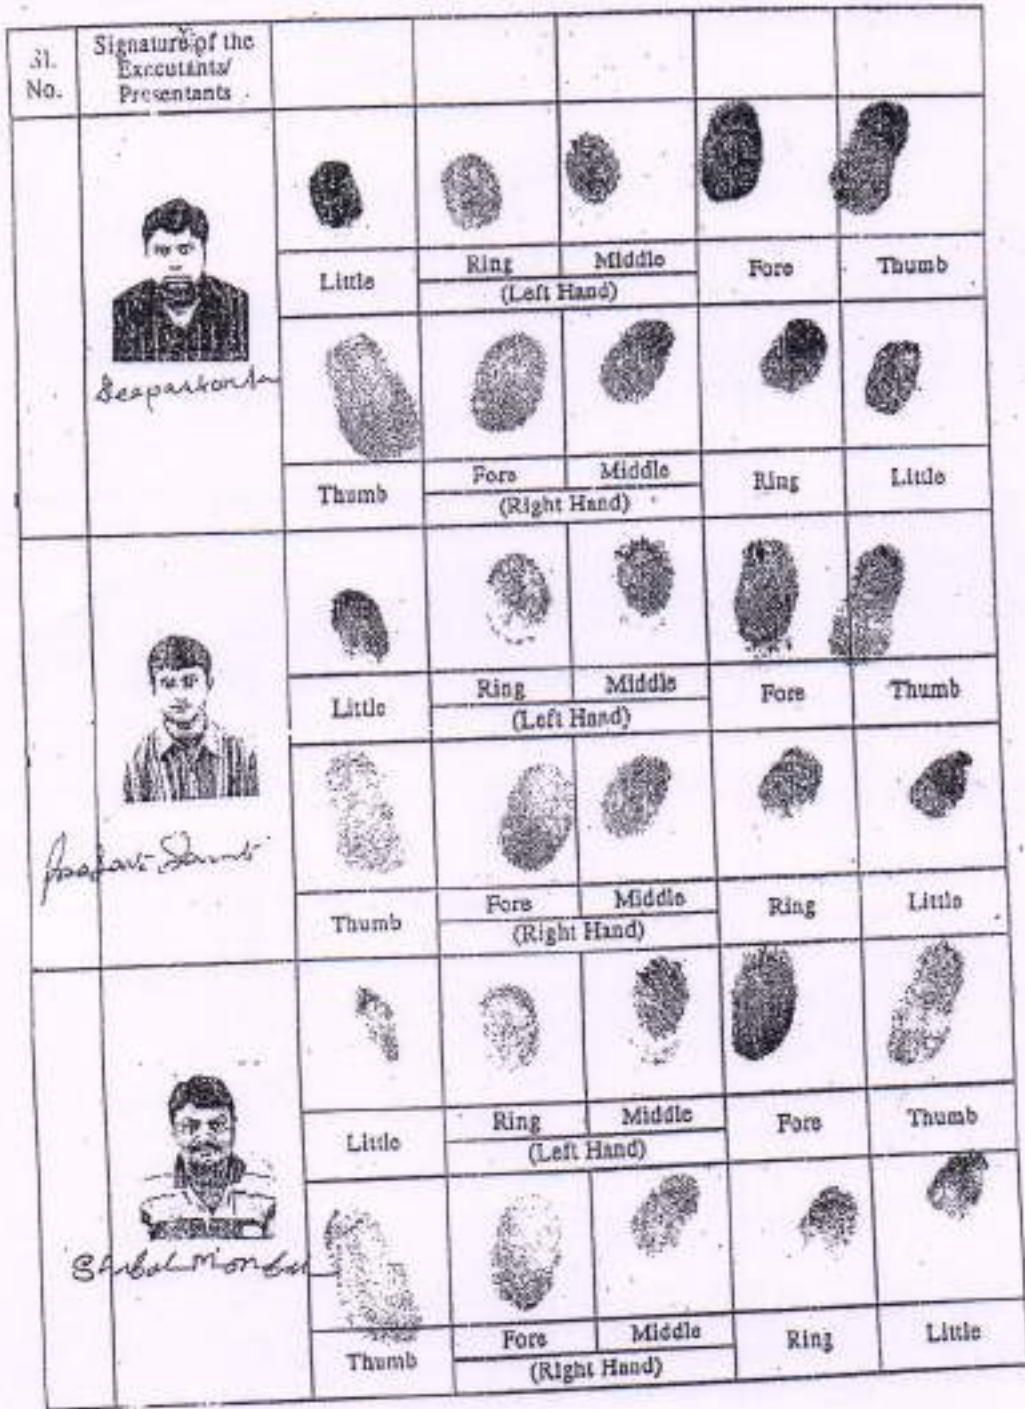 Sl. No.
Signature of the Executants/ Presentants
Little
Ring
Middle
Fore
Thumb
(Left Hand)
Thumb
Fore
Middle
Ring
Little
(Right Hand)
Little
Ring
Middle
Fore
Thumb
(Left Hand)
Thumb
Fore
Middle
Ring
Little
(Right Hand)
Little
Ring
Middle
Fore
Thumb
(Left Hand)
Thumb
Fore
Middle
Ring
Little
(Right Hand)